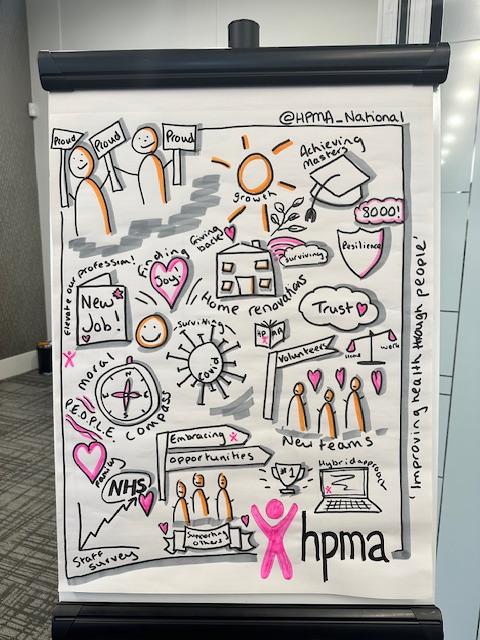 @HPMA_National
Proud
Proud
Proud
Achieving
Masters
growth
8000!
Giving
back
Resilience
Surviving
Elevate our profession!
Finding
Joy!
New
Job!
Home renovations
Trust
Surviving
Covid
HPMA
Volunteers
Home
Work
moral
compass
N
P.E.O.P.L.E.
New teams
'Improving health through people'
Embracing
opportunities
family
NHS
#1
Hybrid approach
Supporting
others
Staff survey
hpma